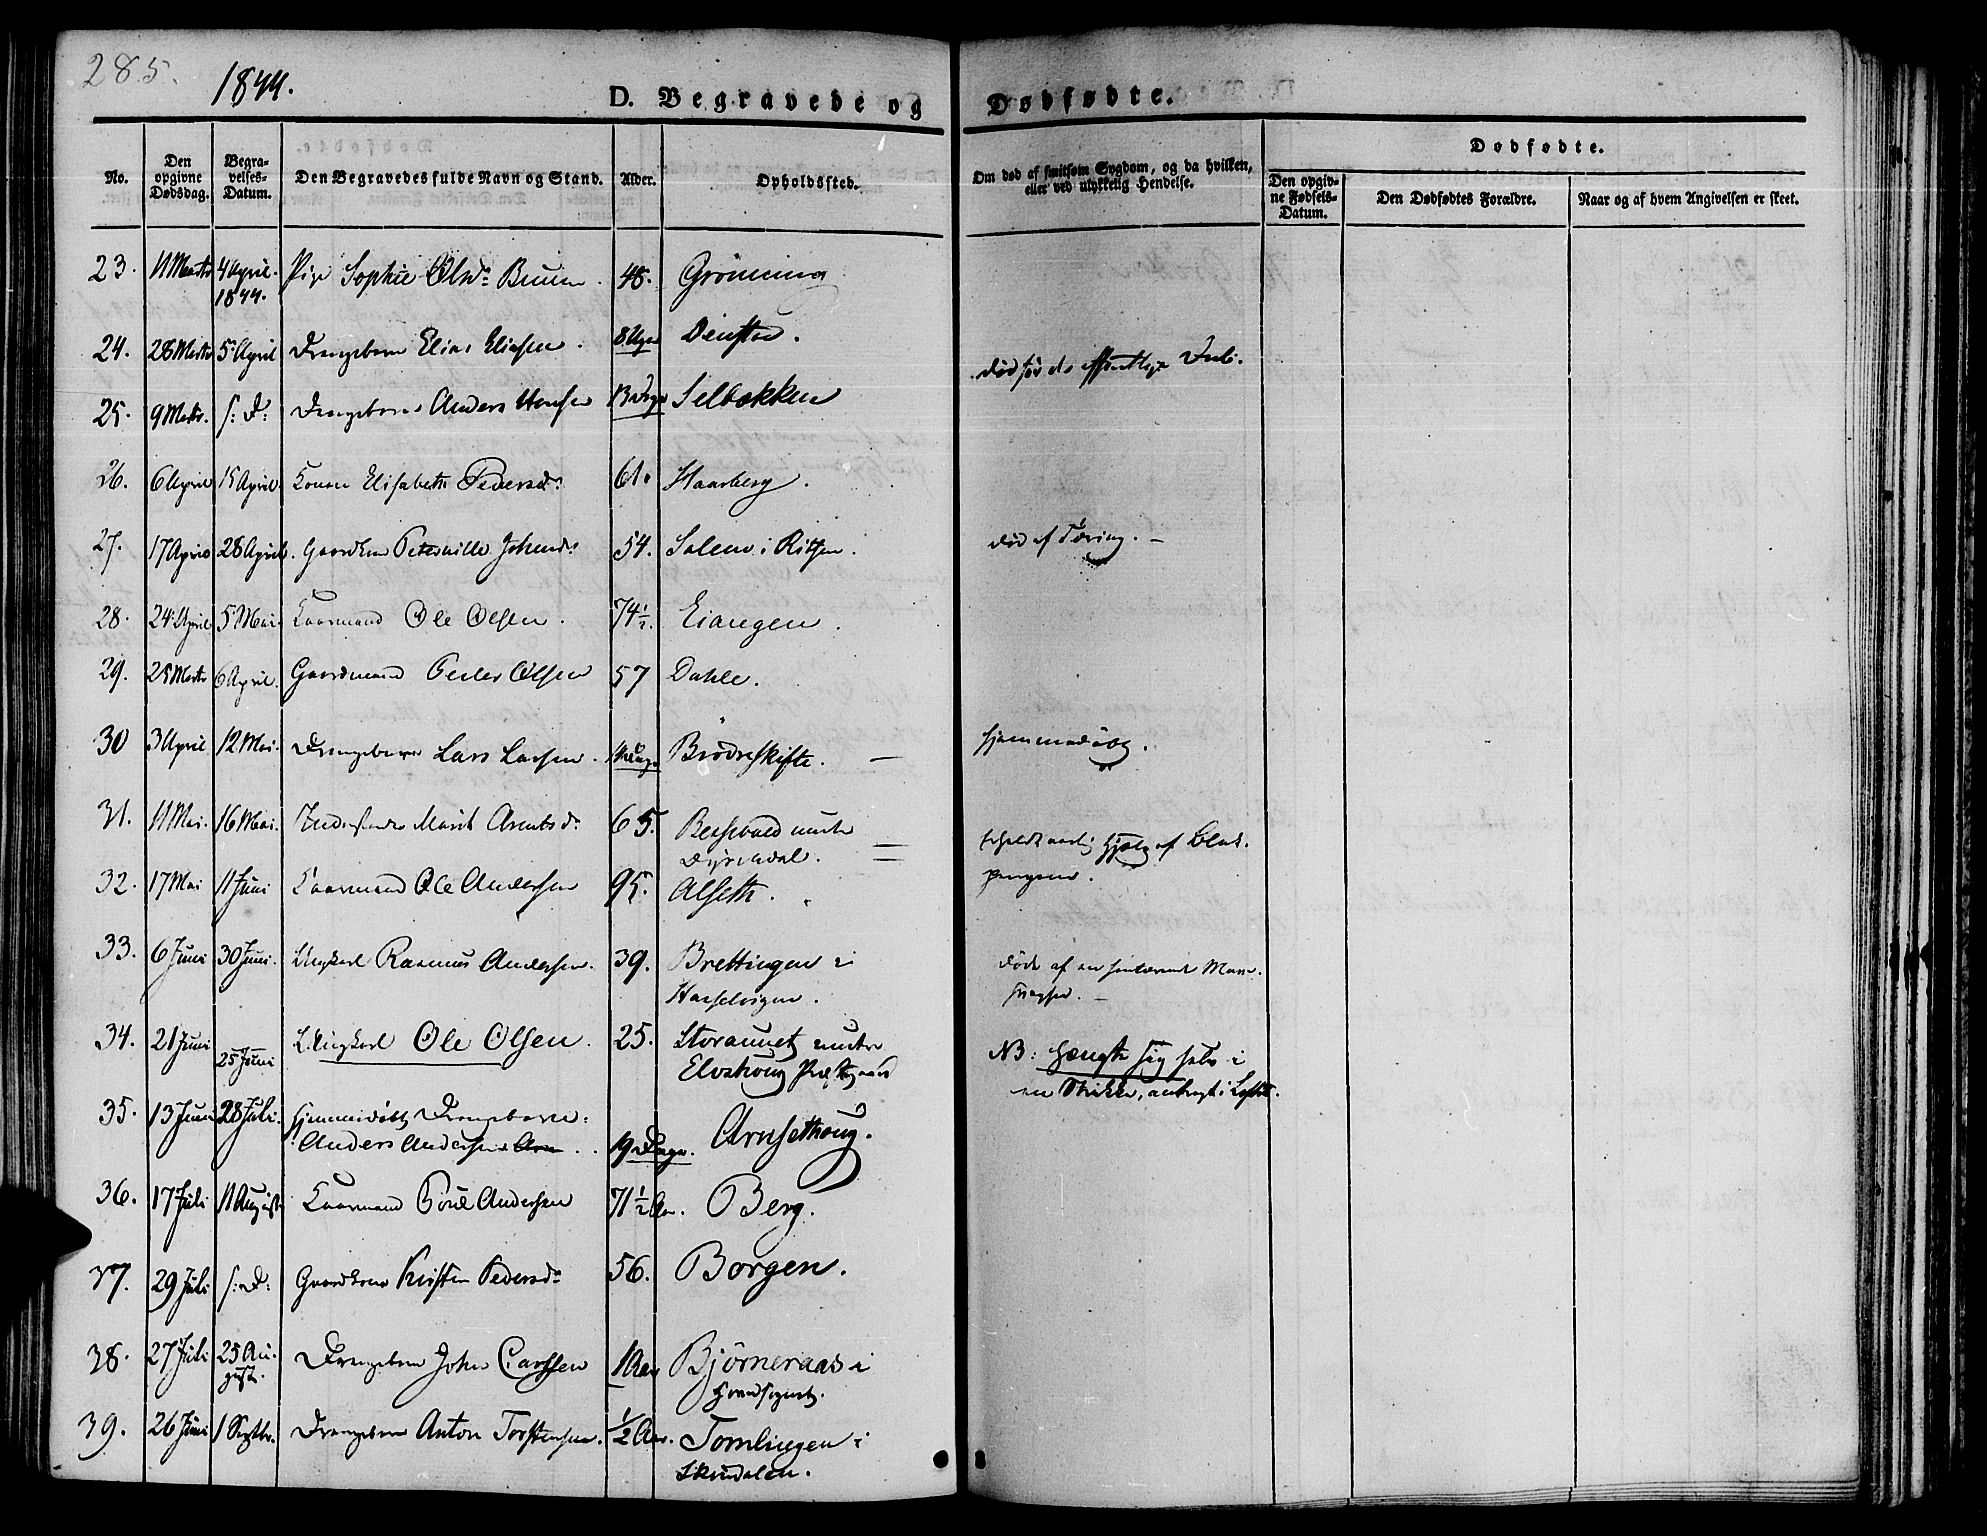 285.
1844.
D. Begravede og Dødfødte.
No.
Den opgivne Dødsdag.
Begravelses-Datum.
Den Begravedes fulde Navn og Stand.
Alder.
Opholdssted.
Om død af smitsom Sygdom, og da hvilken, eller ved ulykkelig Hendelse.
Dødfødte.
Den opgivne Fødsels-Datum.
Den Dødfødtes Forældre.
Naar og af hvem Angivelsen er skeet.
23. 11 Marts 4 April 1844. Pige Sophie Olsdr Bruun 48. Grönning
24. 28 Marts 5 April Drengebarn Elias Eliasen. 8 Uger
25. 9 Marts. s: D: Drengebarn Anders Hansen 13 Dage Selbækken
død før de offentlige
26. 6 April 15 April. Konen Elisabeth Pedersdr 61. Haarberg.
27. 17 April 28 April. Gaardkone Peternille Johnsdr 54. Salem i Ritsen.
død af Tæring. -
28. 24 April 5 Mai Kaarmand Ole Olsen. 74½. Eiangen.
29. 25 Marts 6 April. Gaardmand Peder Olsen 57 Dahle.
30 3 April 12 Mai. Drengebarn Lars Larsen. Brödreskifte.
hjemmedøbt.
31. 11 Mai. 16 Mai. Marit Arntsdr 65. under
Dyrendal.
Hjelp af
pengene.
32. 17 Mai 11 Juni Kaarmand Ole Andersen 95. Alseth.
33. 6 Juni 30 Juni. Ungkarl Rasmus Andersen. 39. Brettingen i
Hasselvigen.
Døde af en
34. 21 Juni 25 Juni Ungkarl Ole Olsen. 25. Storaunet under
Elvshoug Præstegaard
NB: hængte sig selv i
en Strikke, anbragt i Loftet.
35. 13 Juni 28 Juli. hjemmedøbt Drengebarn
Anders Andersen 19 Dage. Arnsethoug.
36. 17 Juli 11 August Kaarmand Poul Andersen 71½ Aar. Berg.
37. 29 Juli s: D: Gaardkone Kirsten Pedersdr 56. Borgen.
38. 27 Juli 25 August. Drengebarn John Larssen 1 Aar Björneraas i
39. 26 Juni 1 Septbr. Drengebarn Anton Torstensen. ½ Aar. Tomlingen i
Skrudalen.